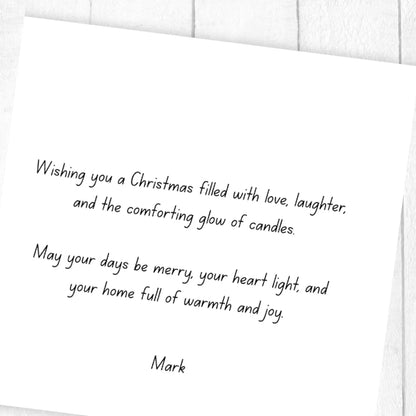 Wishing you a Christmas filled with love, laughter,
and the comforting glow of candles.
May your days be merry, your heart light, and
your home full of warmth and joy.
Mark